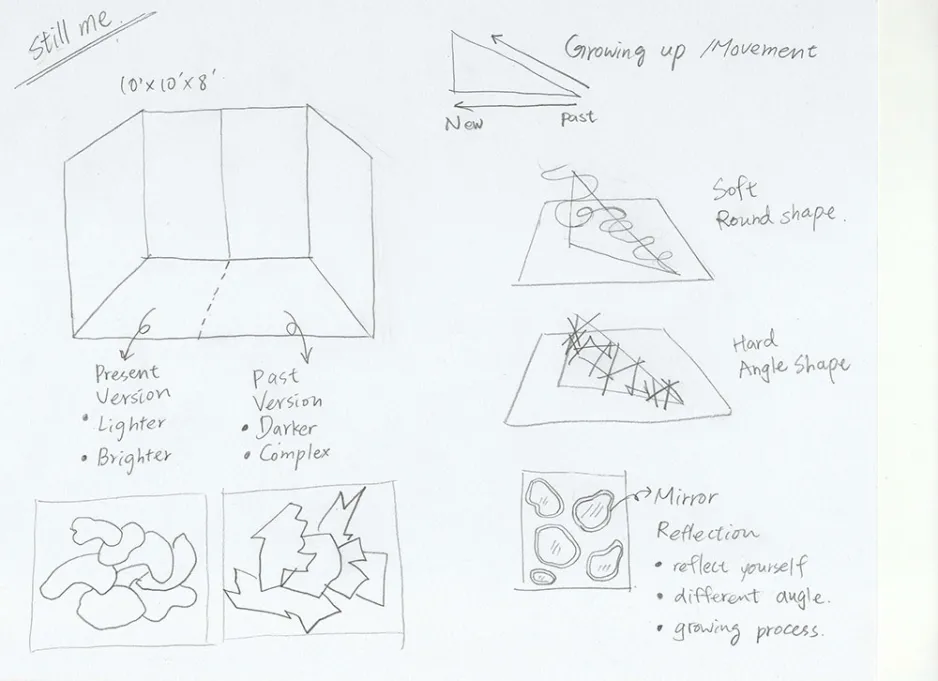 Still me
10'x10'x8'
Growing up /Movement
New
past
Soft
Round shape.
Hard
Angle Shape
Present
Version
• Lighter
• Brighter
Past
Version
• Darker
• Complex
Mirror
Reflection
• reflect yourself
• different angle.
• growing process.